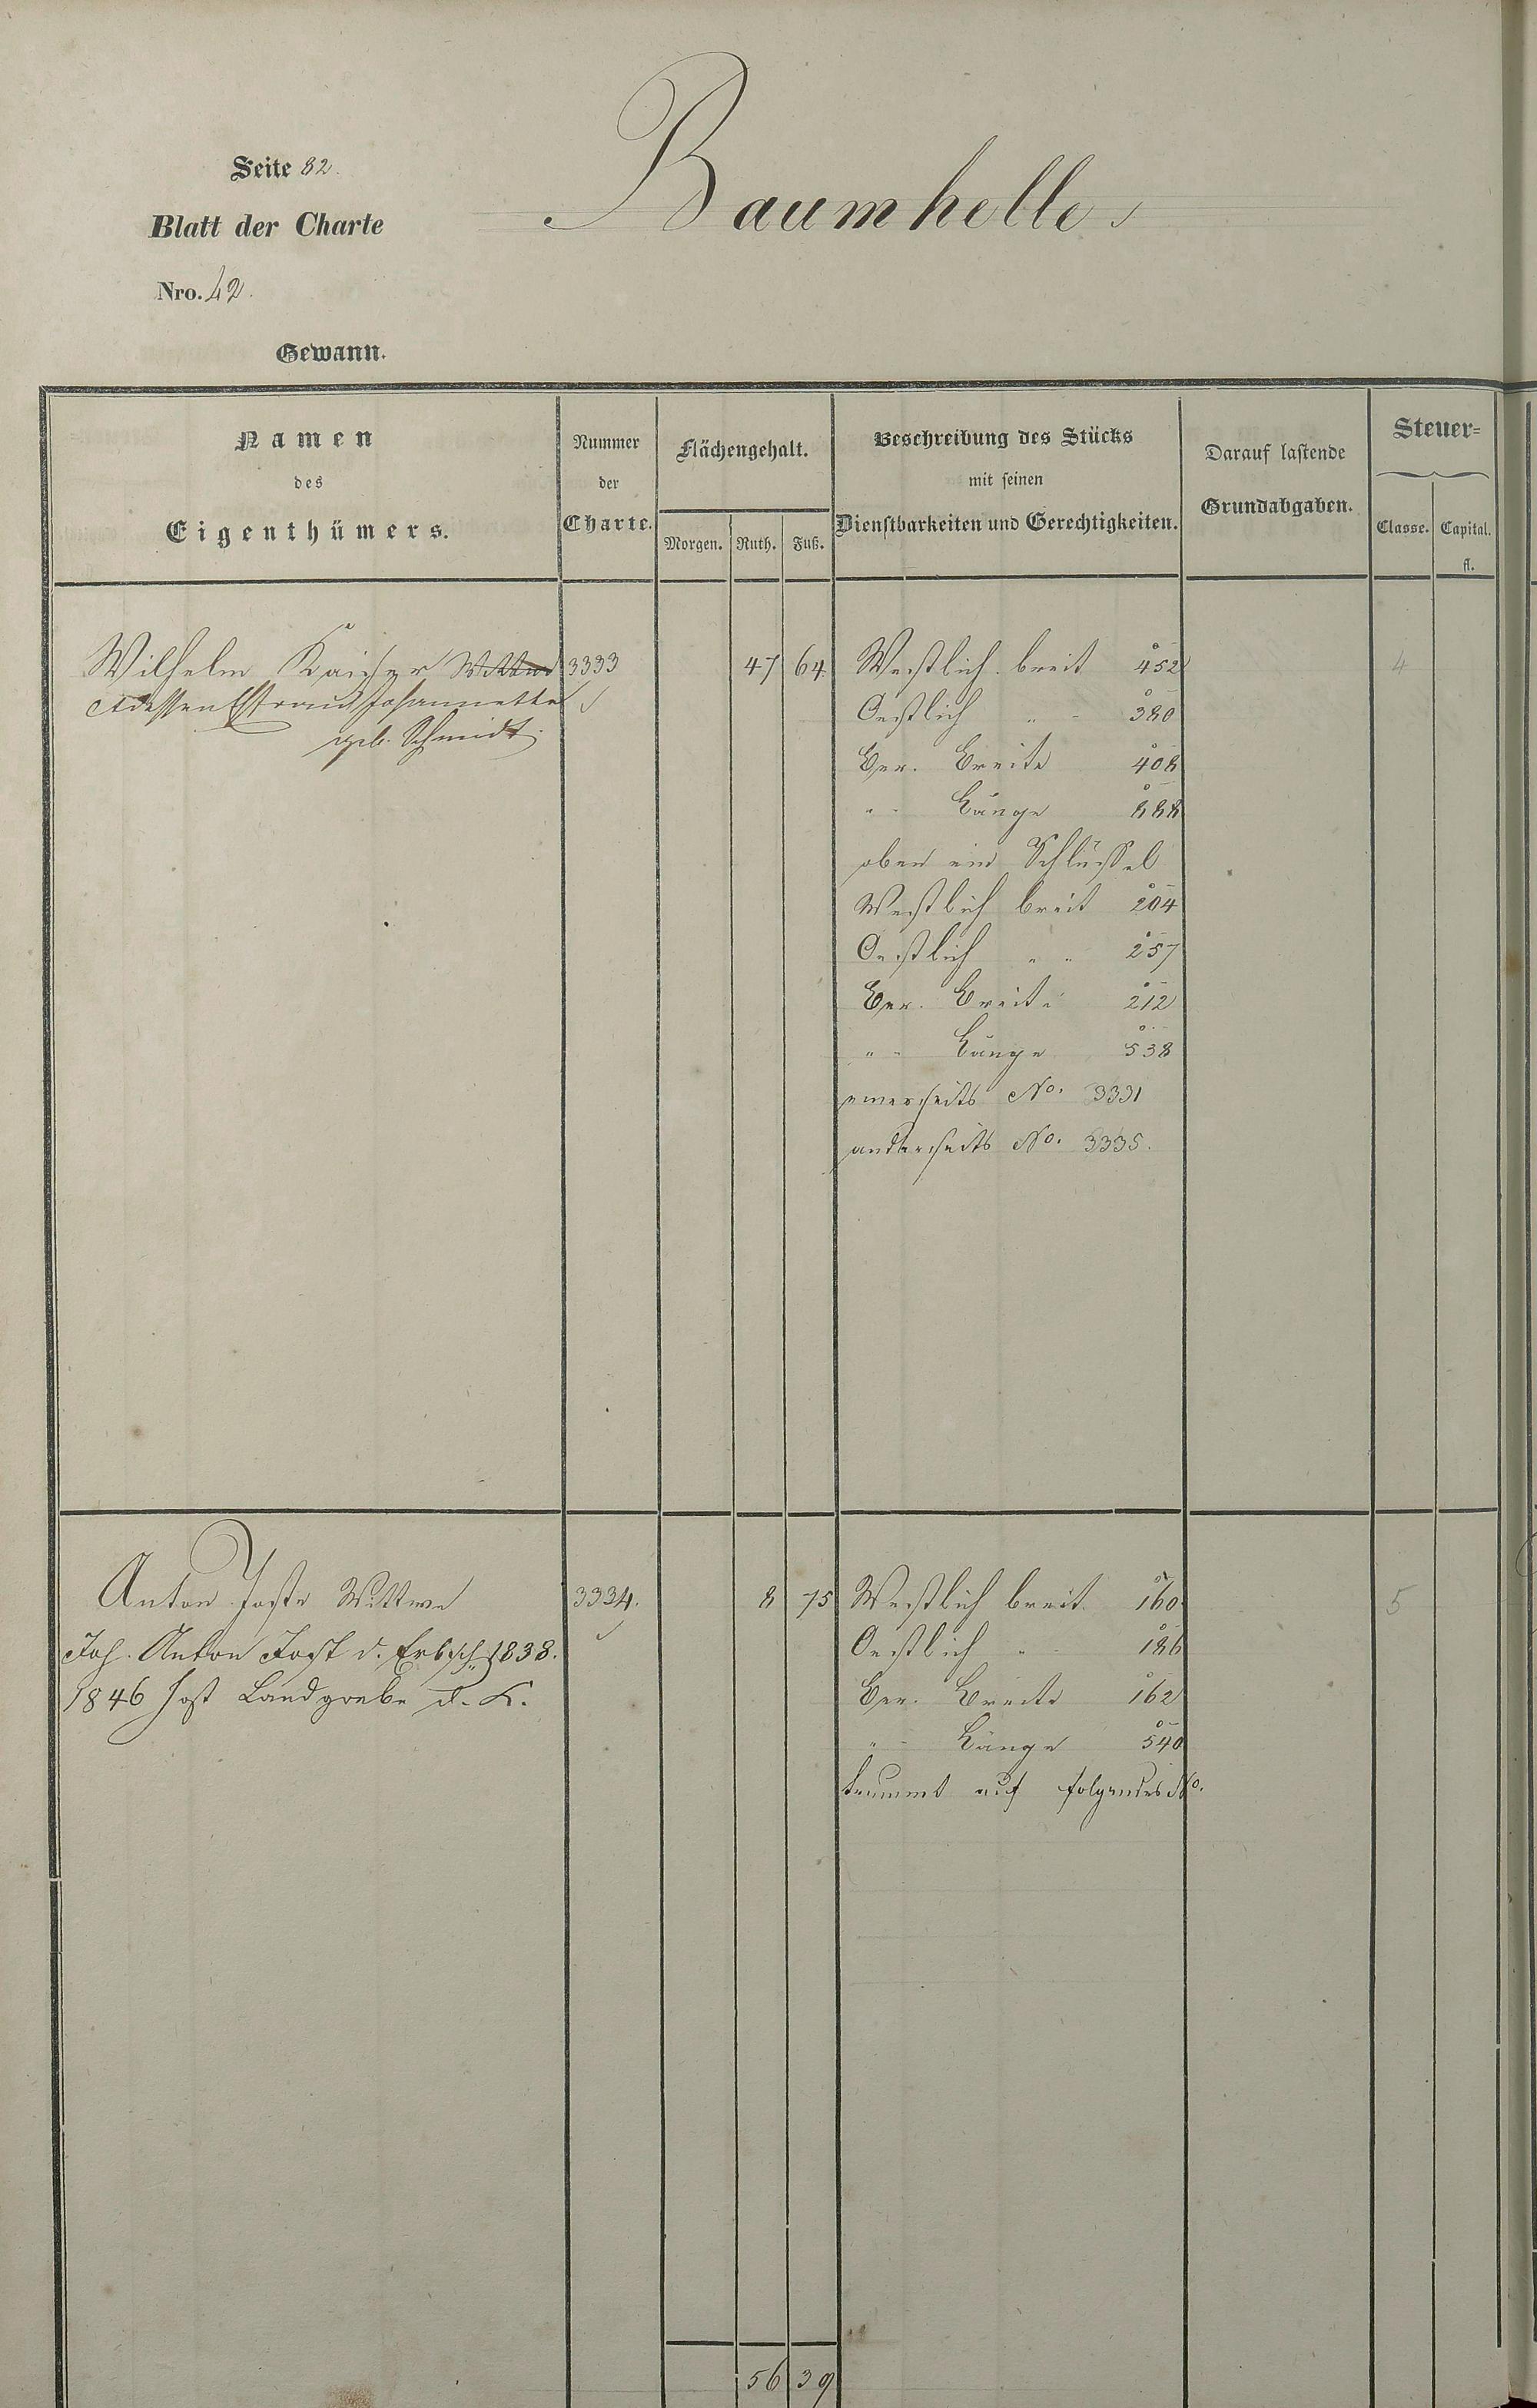 Seite 82.
Baumhelle
Blatt der Charte
Nro. 42.
Gewann.
Namen
des
Eigenthümers.
Nummer
der
Charte.
Flächengehalt.
Morgen. Ruth. Fuß.
Beschreibung des Stücks
mit seinen
Dienstbarkeiten und Gerechtigkeiten.
Darauf lastende
Grundabgaben.
Steuer=
Classe. Capital.
fl.
Wilhelm Kaiser Wittwe 3333 47 64 Westlich breit 452 4
dessen Ehefrau Johannette
geb. Schmidt.
Oestlich " 380
Ber. Breite 408
" Länge 888
oben ein Schlüssel
Westlich breit 204
Oestlich " " 257
Ber. Breite 212
" Länge 538
einerseits No. 3331
anderseits No. 3335.
Anton Joste Wittwe 3334. 8 75 Westlich breit 160 5
Joh. Anton Jost d. Erbsch. 1838. Oestlich " 186
1846 Jost Landgrebe d. K. Ber. Breite 162
" Länge 540
kommt auf folgendes No.
56 39